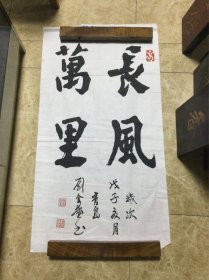 長風
萬里
歲次
戊子夏月
青島
劉金
書